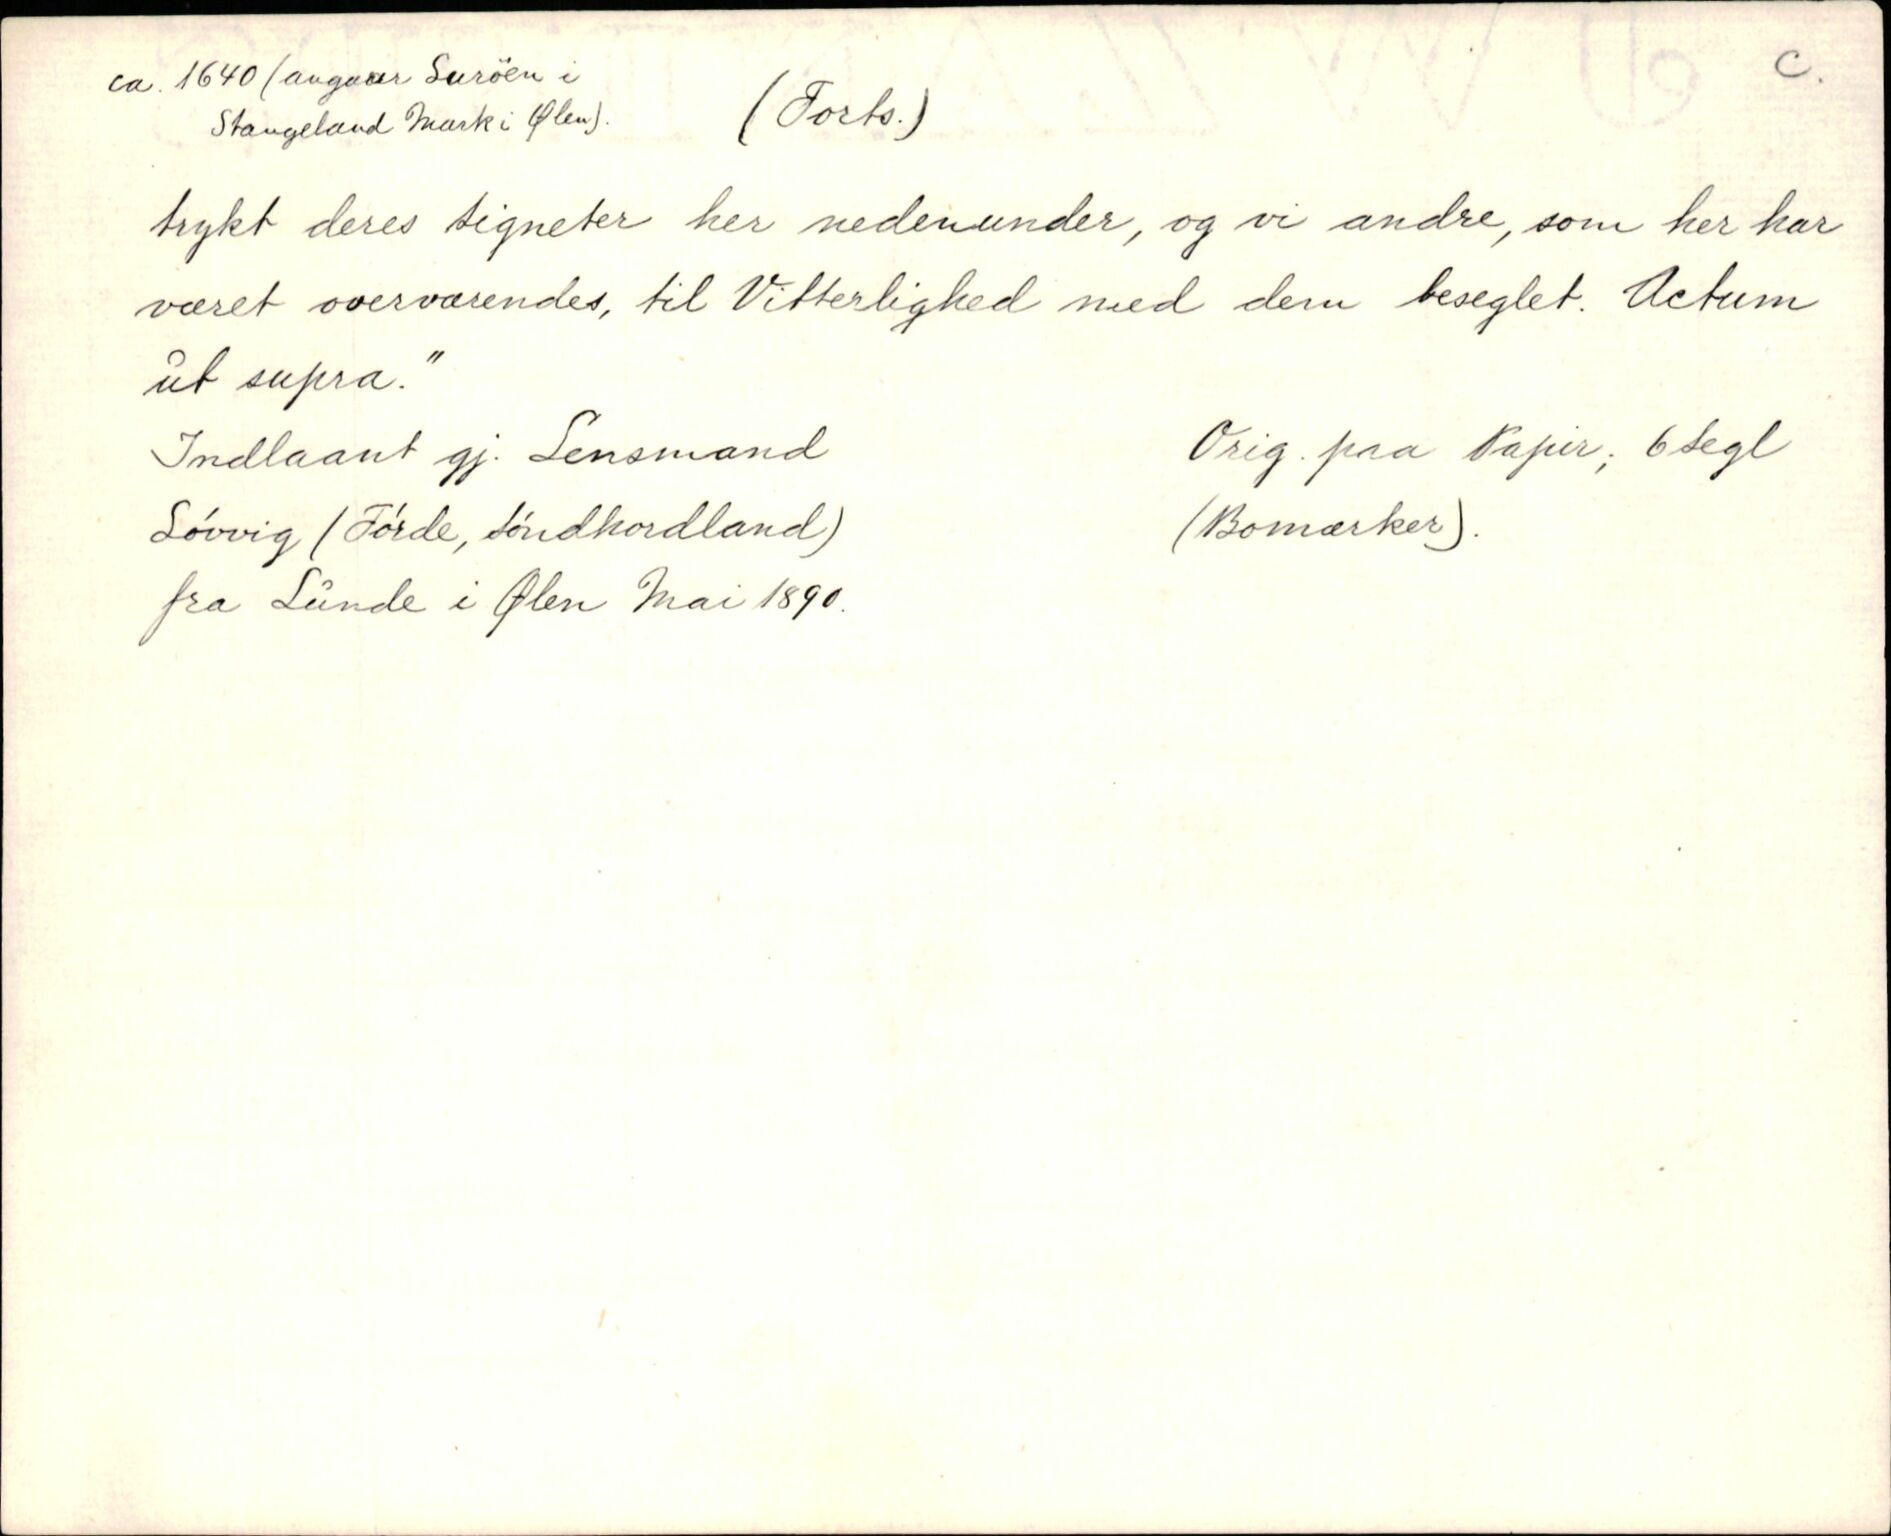 c.
ca. 1640 (angaar Suröen i
Stangeland Mark i Ølen).
(Forts.)
trykt deres Signeter her nedenunder, og vi andre, som her har
været overværendes, til Vitterlighed med dem beseglet. Actum
ut supra."
Indlaant gj. Lensmand
Løvvig (Førde, Søndhordland)
fra Lunde i Ølen Mai 1890.
Orig. paa Papir; 6 Segl
(Bomærker).